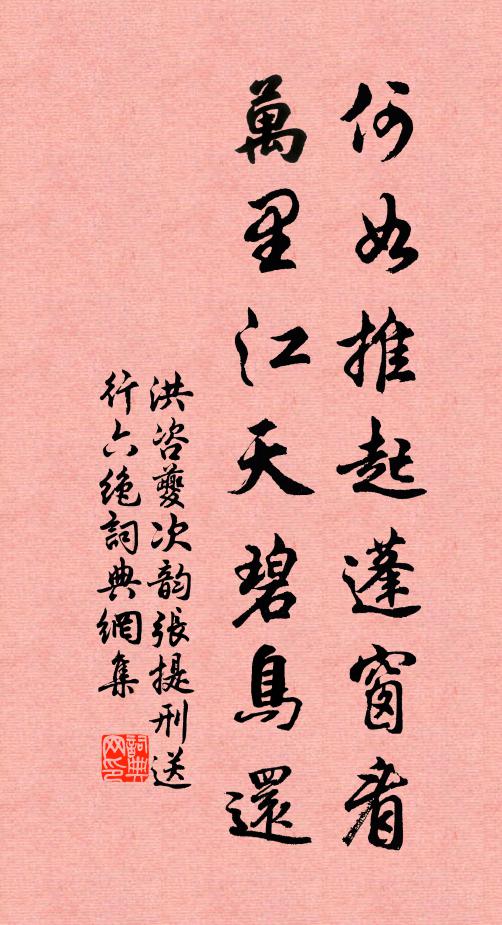 何如推起蓬窗看
萬里江天碧鳥還
洪咨夔次韵張提刑送
行六絶詞典網集
詞典网印